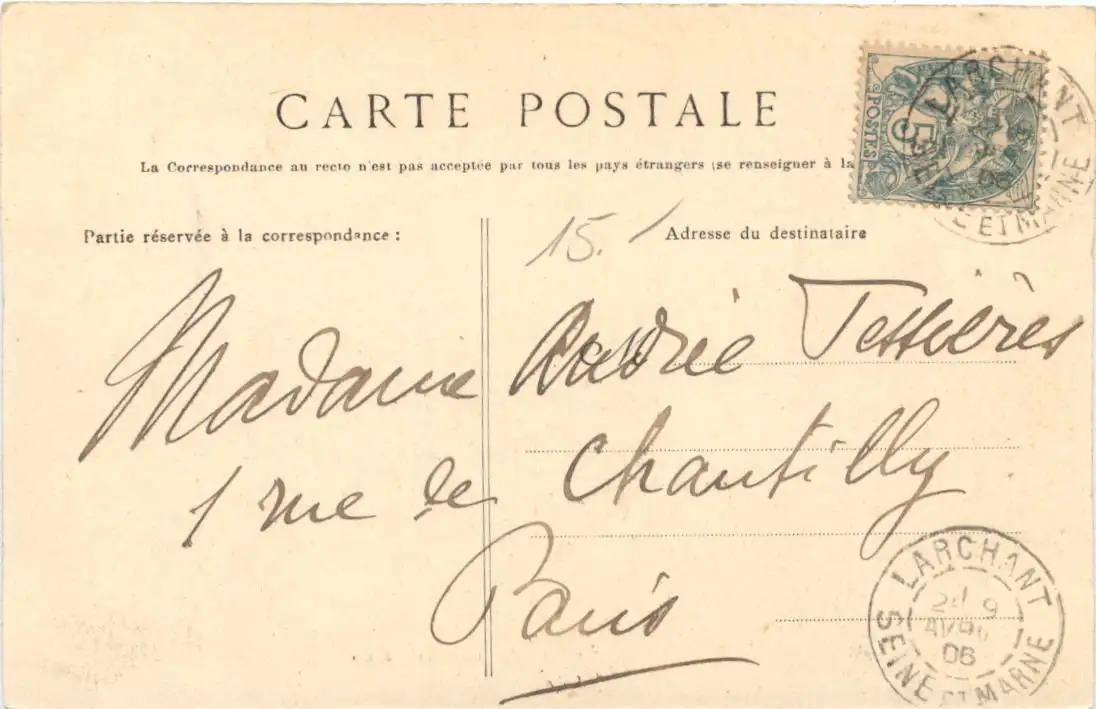 CARTE POSTALE
La Correspondance au recto n'est pas acceptée par tous les pays étrangers (se renseigner à la
POSTES 5
LARCHANT
SEINE ET MARNE
Partie réservée à la correspondance :
15.
Adresse du destinataire
Madame Tessières
1 rue de Chantilly
Paris
LARCHANT
9
AVR
06
SEINE ET MARNE